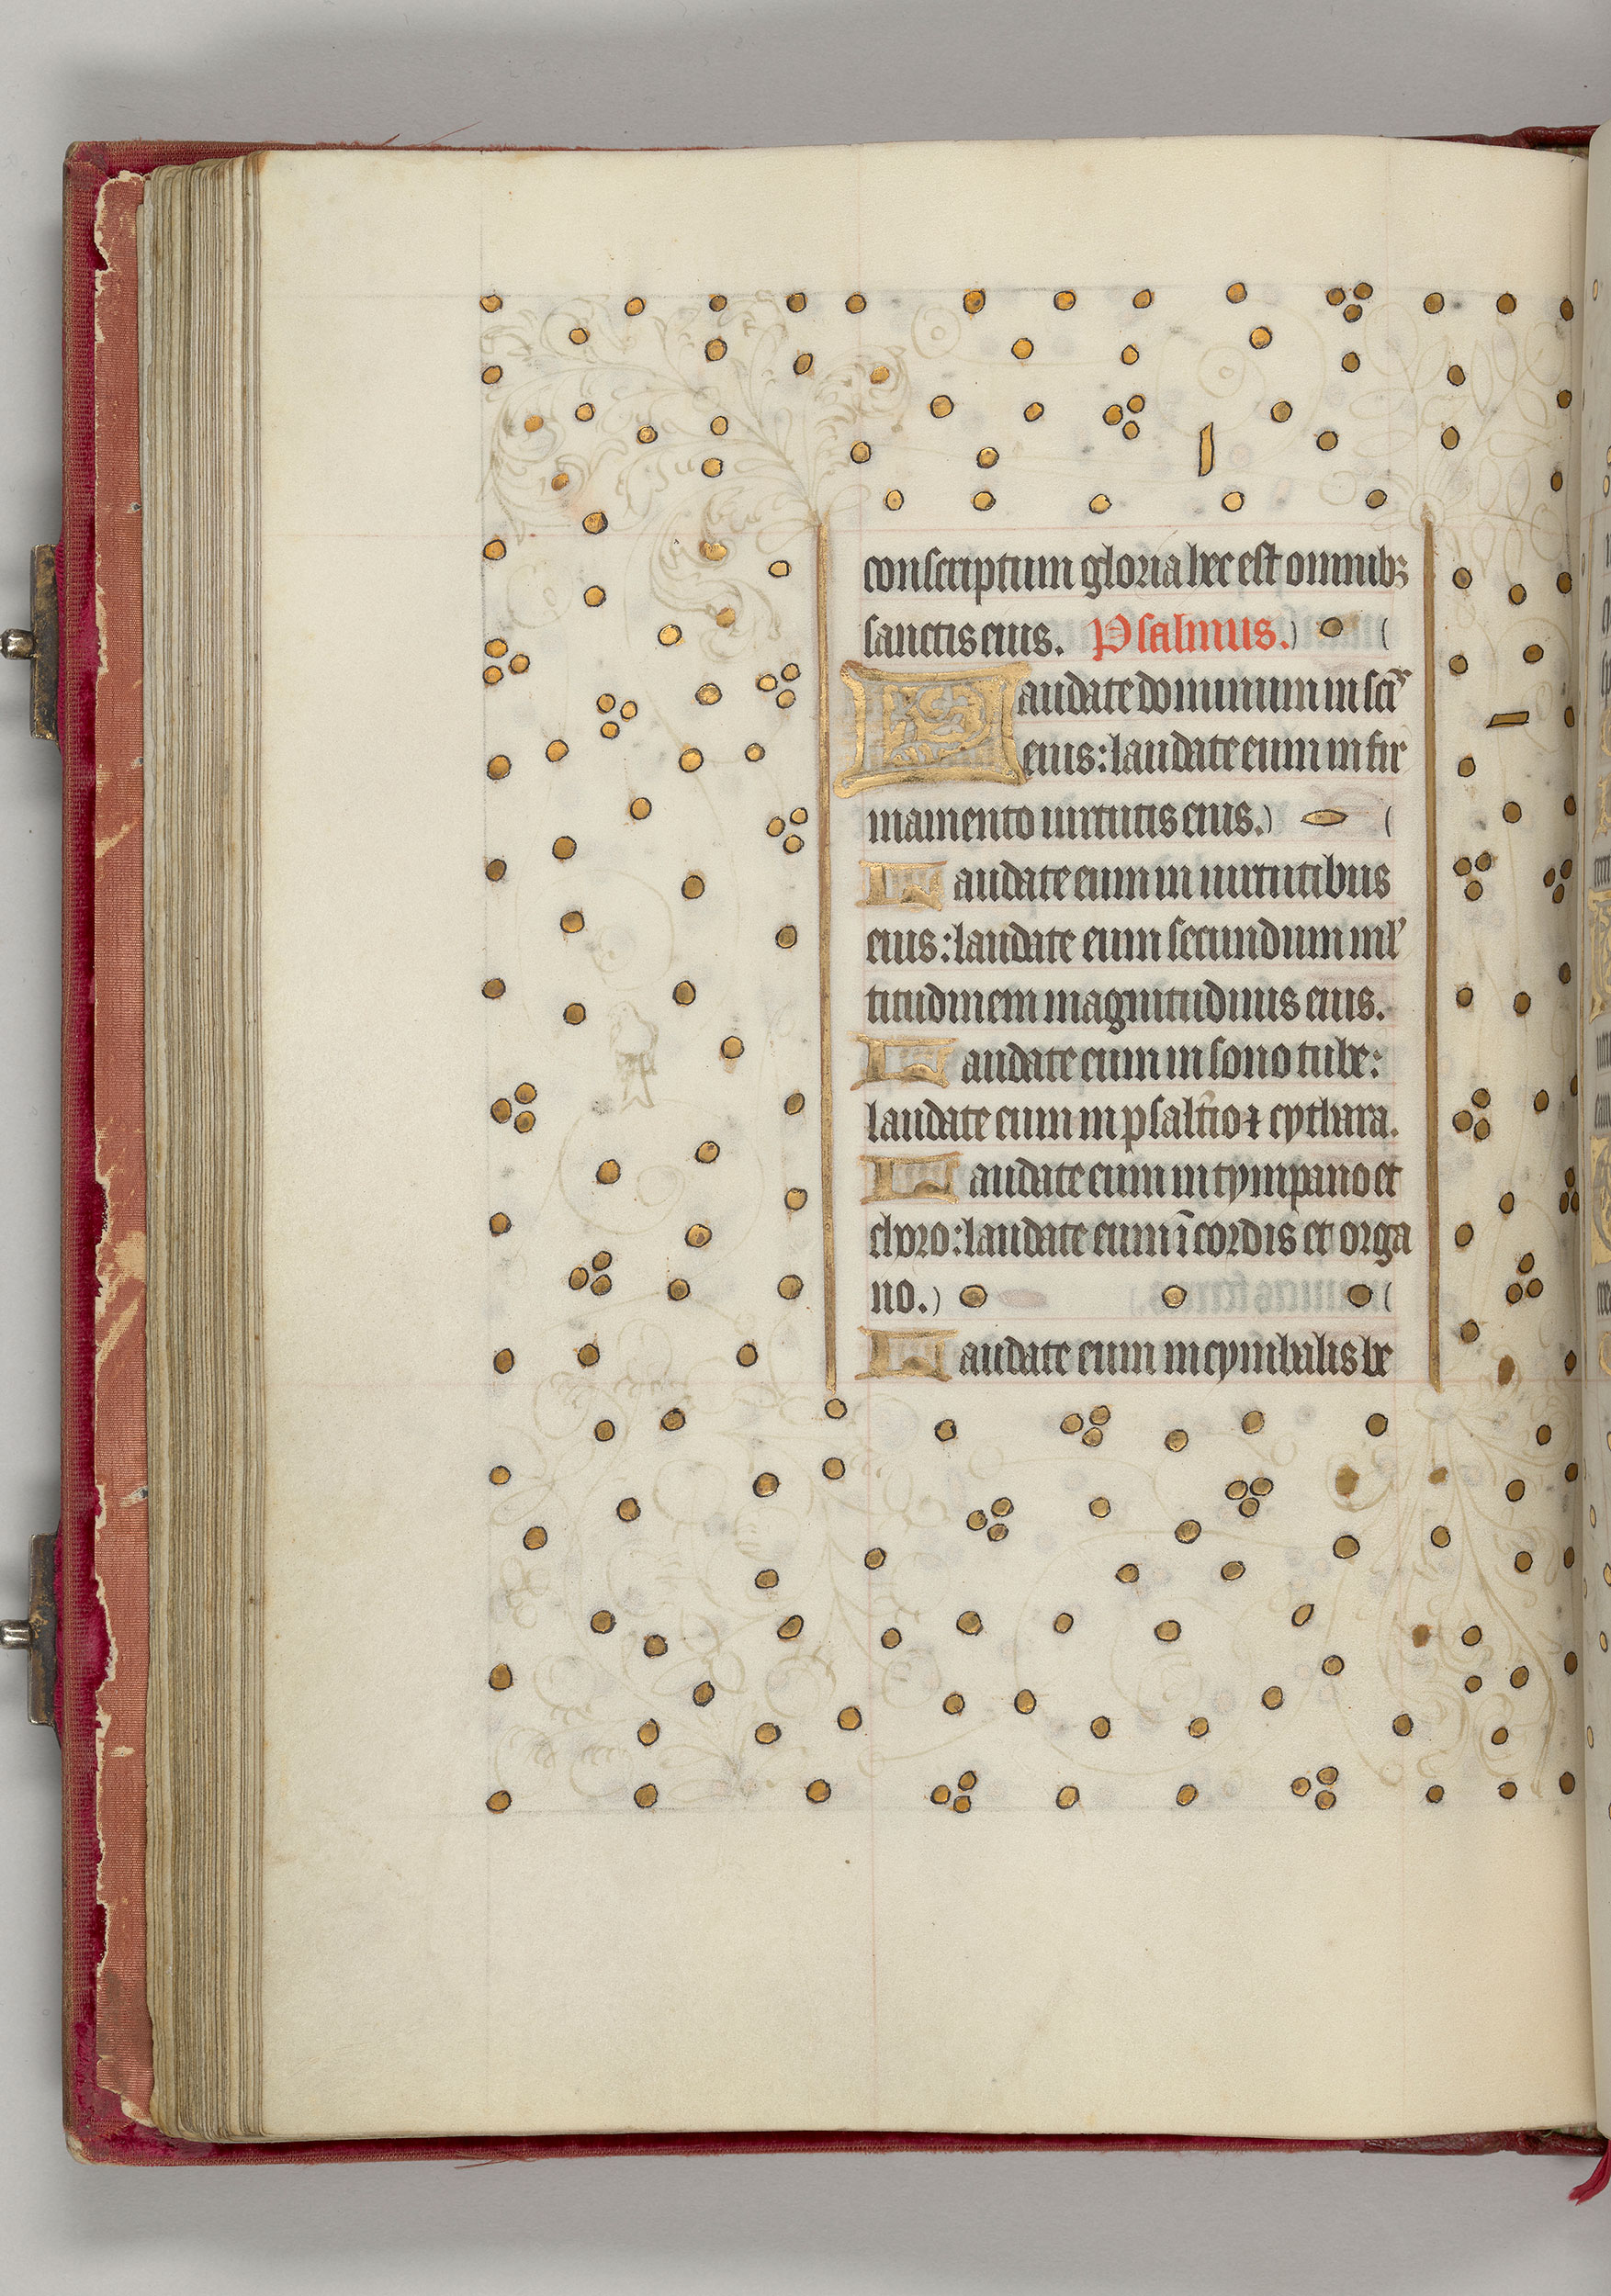 conscriptum gloria hec est omnibꝫ
sanctis eius. Psalmus.
Laudate dominum in sc̃is
eius: laudate eum in fir
mamento uirtutis eius.
Laudate eum in uirtutibus
eius: laudate eum secundum ml'
titudinem magnitudinis eius.
Laudate eum in sono tube:
laudate eum in psalt̃io ⁊ cythara.
Laudate eum in tympano et
choro: laudate eum ĩ cordis et orga
no.
Laudate eum in cymbalis be